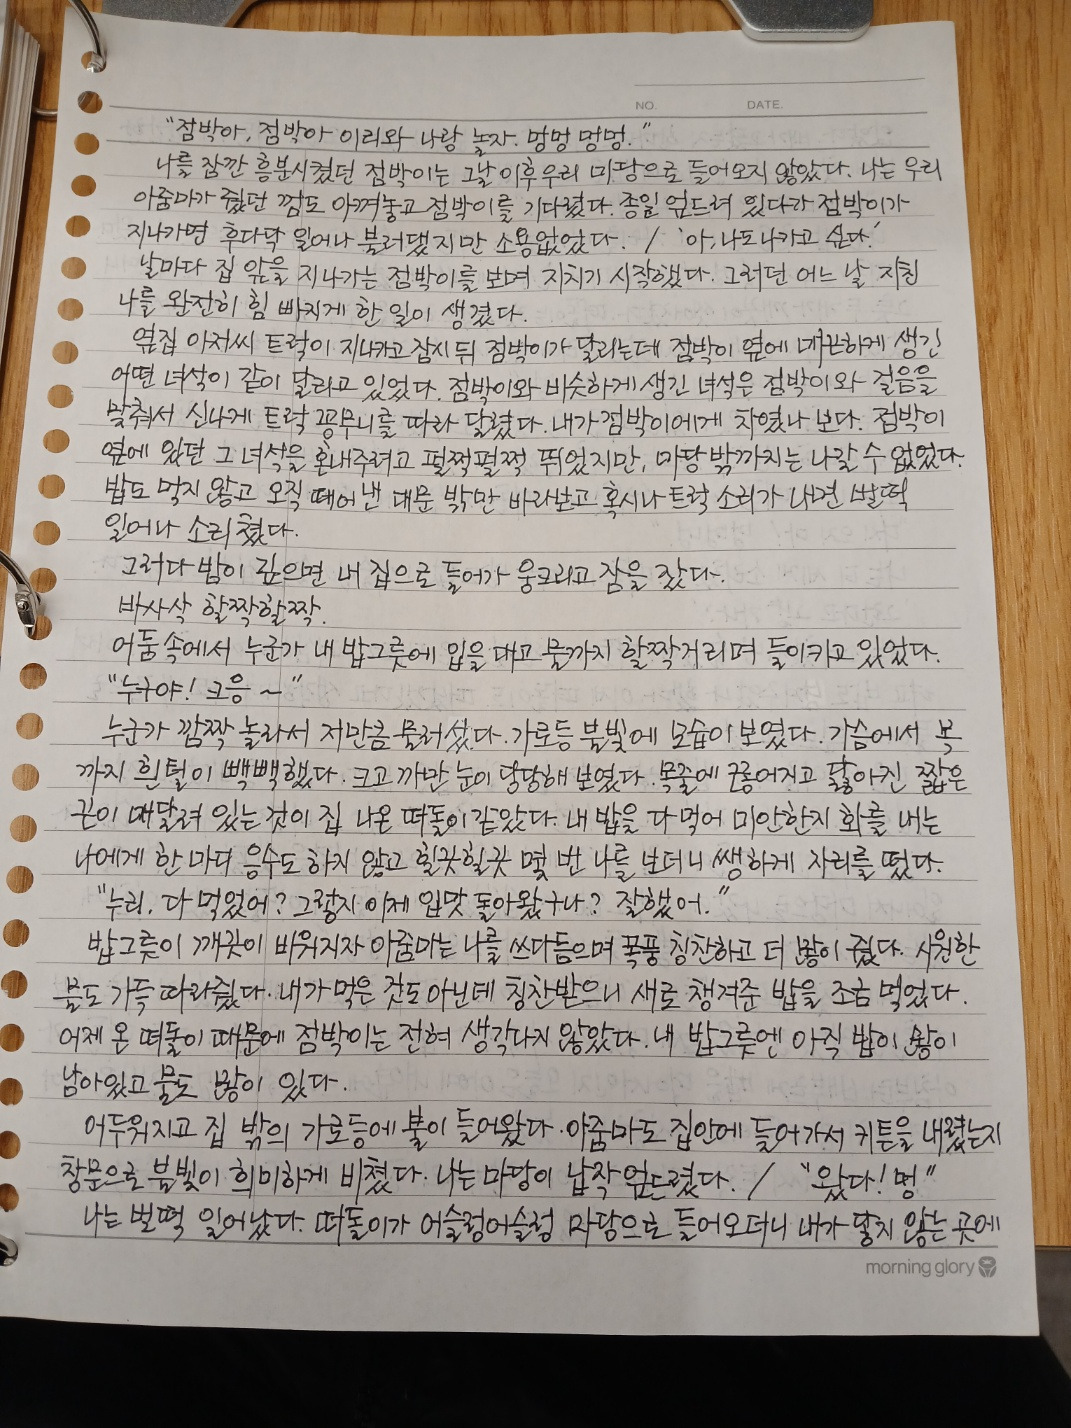 NO. DATE.
"점박아, 점박아 이리와 나랑 놀자. 멍멍 멍멍."
나를 잠깐 흥분시켰던 점박이는 그날 이후 우리 마당으로 들어오지 않았다. 나는 우리
아줌마가 줬던 껌도 아껴놓고 점박이를 기다렸다. 종일 엎드려 있다가 점박이가
지나가면 후다닥 일어나 불러댔지만 소용없었다. / '아, 나도 나가고 싶다.'
날마다 집 앞을 지나가는 점박이를 보며 지치기 시작했다. 그러던 어느 날 지친
나를 완전히 힘 빠지게 한 일이 생겼다.
옆집 아저씨 트럭이 지나가고 잠시 뒤 점박이가 달리는데 점박이 옆에 매끈하게 생긴
어떤 녀석이 같이 달리고 있었다. 점박이와 비슷하게 생긴 녀석은 점박이와 걸음을
맞춰서 신나게 트럭 꽁무니를 따라 달렸다. 내가 점박이에게 차였나 보다. 점박이
옆에 있던 그 녀석을 혼내주려고 펄쩍펄쩍 뛰었지만, 마당 밖까지는 나갈 수 없었다.
밥도 먹지 않고 오직 떼어 낸 대문 밖만 바라보고 혹시나 트럭 소리가 나면 벌떡
일어나 소리쳤다.
그러다 밤이 깊으면 내 집으로 들어가 웅크리고 잠을 잤다.
바사삭 할짝할짝.
어둠 속에서 누군가 내 밥그릇에 입을 대고 물까지 할짝거리며 들이키고 있었다.
"누구야! 크응 ~"
누군가 깜짝 놀라서 저만큼 물러섰다. 가로등 불빛에 모습이 보였다. 가슴에서 목
까지 흰털이 빽빽했다. 크고 까만 눈이 당당해 보였다. 목줄에 구롱어지고 닳아진 짧은
끈이 매달려 있는 것이 집 나온 떠돌이 같았다. 내 밥을 다 먹어 미안한지 화를 내는
나에게 한 마디 응수도 하지 않고 힐끗힐끗 몇 번 나를 보더니 쌩하게 자리를 떴다.
"누리, 다 먹었어? 그렇지 이제 입맛 돌아왔구나? 잘했어."
밥그릇이 깨끗이 비워지자 아줌마는 나를 쓰다듬으며 폭풍 칭찬하고 더 많이 줬다. 시원한
물도 가득 따라줬다. 내가 먹은 것도 아닌데 칭찬받으니 새로 챙겨준 밥을 조금 먹었다.
어제 온 떠돌이 때문에 점박이는 전혀 생각나지 않았다. 내 밥그릇엔 아직 밥이 많이
남아있고 물도 많이 있다.
어두워지고 집 밖의 가로등에 불이 들어왔다. 아줌마도 집안에 들어가서 커튼을 내렸는지
창문으로 불빛이 희미하게 비쳤다. 나는 마당이 납작 엎드렸다. / "왔다! 멍"
나는 벌떡 일어났다. 떠돌이가 어슬렁어슬렁 마당으로 들어오더니 내가 닿지 않는 곳에
morning glory